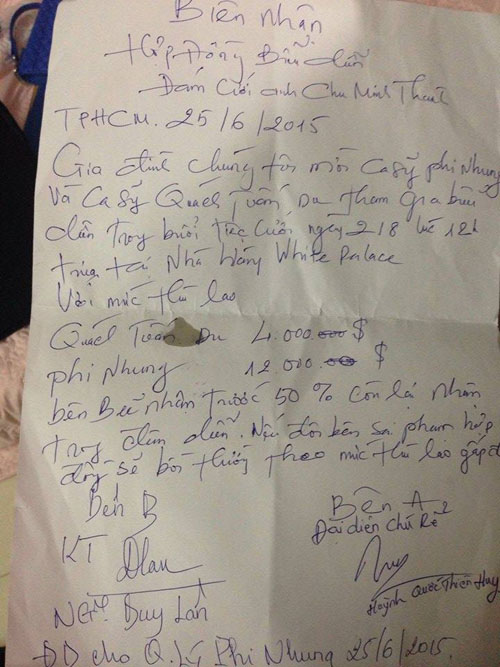 Biên Nhận
Hợp Đồng Biểu diễn
Đám Cưới anh Chu Minh
TPHCM. 25/6/2015
Gia đình chúng tôi mời Ca sỹ phi Nhung
Và Ca Sỹ Quách Tuấn Du tham gia biểu
diễn trong buổi tiệc Cưới ngày 2/8 lúc 12h
trưa tại Nhà hàng White Palace
Với mức thù lao
Quách Tuấn Du 4.000 $
phi Nhung 12.000 $
bên B sẽ nhận trước 50% Còn lại nhận
trong đêm diễn. Nếu đôi bên sai phạm hợp
đồng sẽ bồi thường theo mức thù lao gấp đôi
Bên B
Bên A
Đại diện Chú Rể
KT
Huỳnh Quốc Thiên Huy
NGT. Duy Lân
ĐD cho Q. Lý Phi Nhung 25/6/2015.